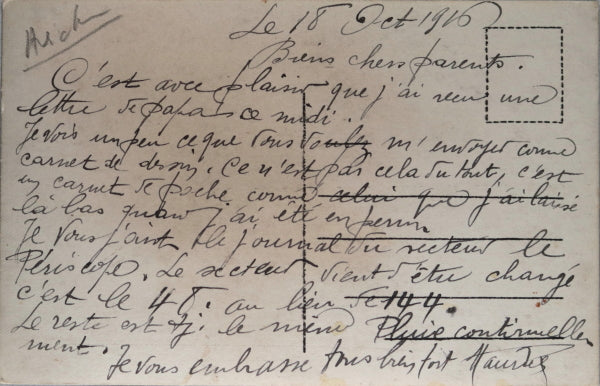 Le 18 Oct 1916
Biens chers parents.
C'est avec plaisir que j'ai recu une
lettre de papa ce midi.
Je vois un peu ce que vous voulez m'envoyer comme
carnet de dessin. Ce n'est pas cela du tout, c'est
un carnet de poche comme celui que j'ai laissé
là bas quand j'ai été en perm
Je vous joint le journal du secteur le
Périscope. Le secteur vient d'être changé
c'est le 48. au lieu de 144.
Le reste est tj. le même Pluie continuelle-
ment.
Je vous embrasse tous bien fort